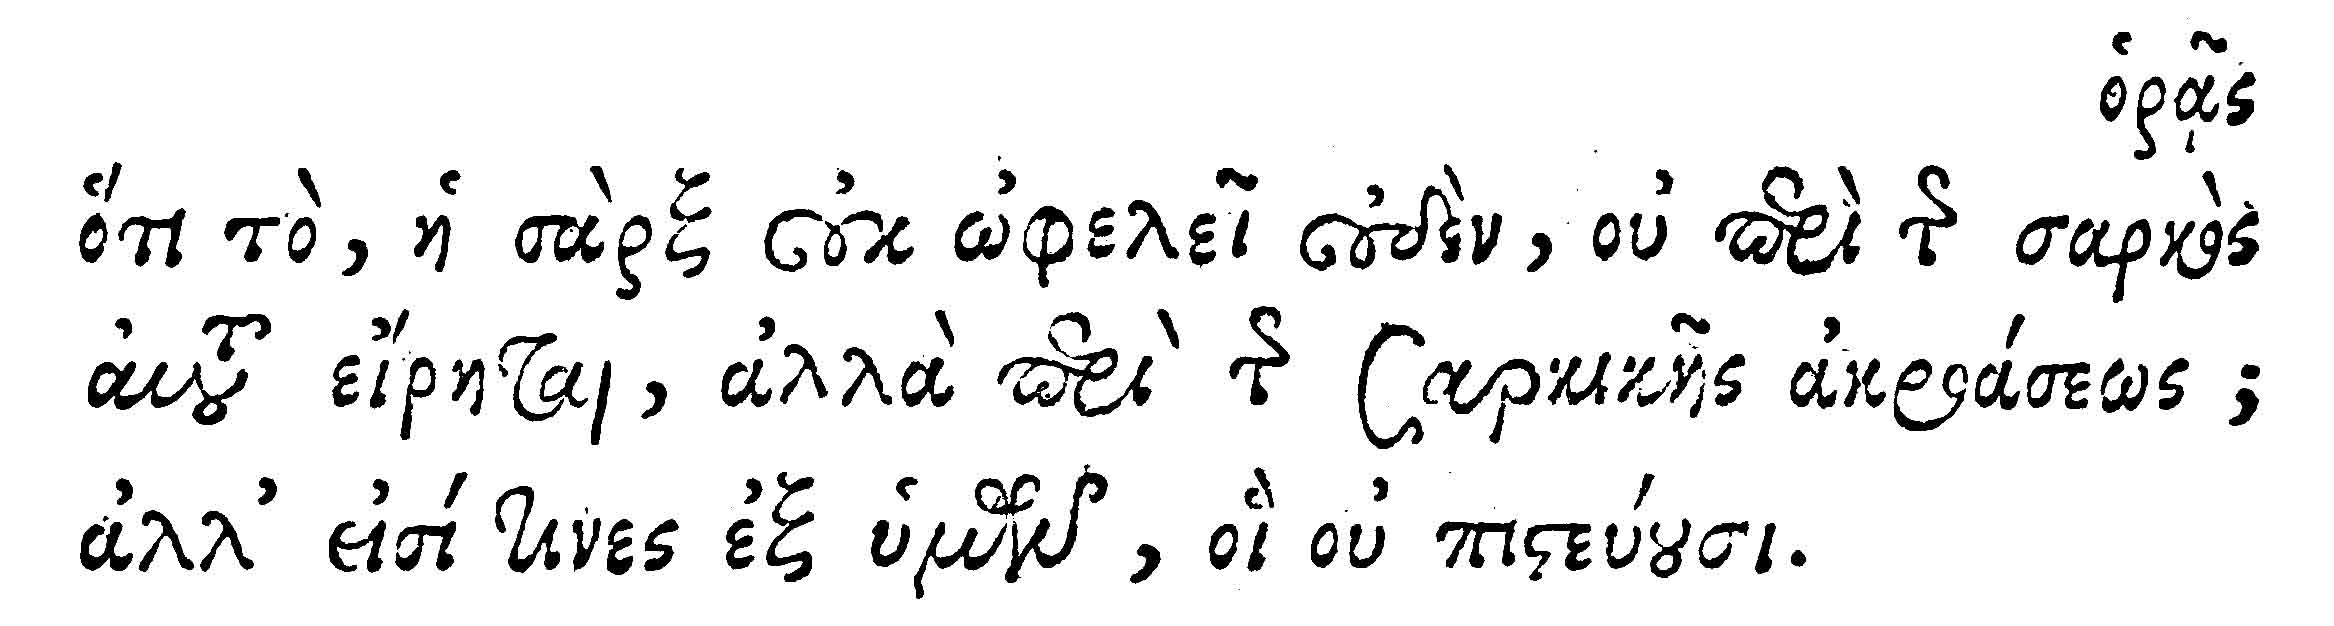 ὁρᾷς
ὅτι τὸ, ἡ σὰρξ οὐκ ὠφελεῖ οὐδὲν, οὐ περὶ τῆς σαρκὸς
αὐτοῦ εἴρηται, ἀλλὰ περὶ τῆς σαρκικῆς ἀκροάσεως;
ἀλλ’ εἰσί τινες ἐξ ὑμῶν, οἳ οὐ πιστεύουσι.